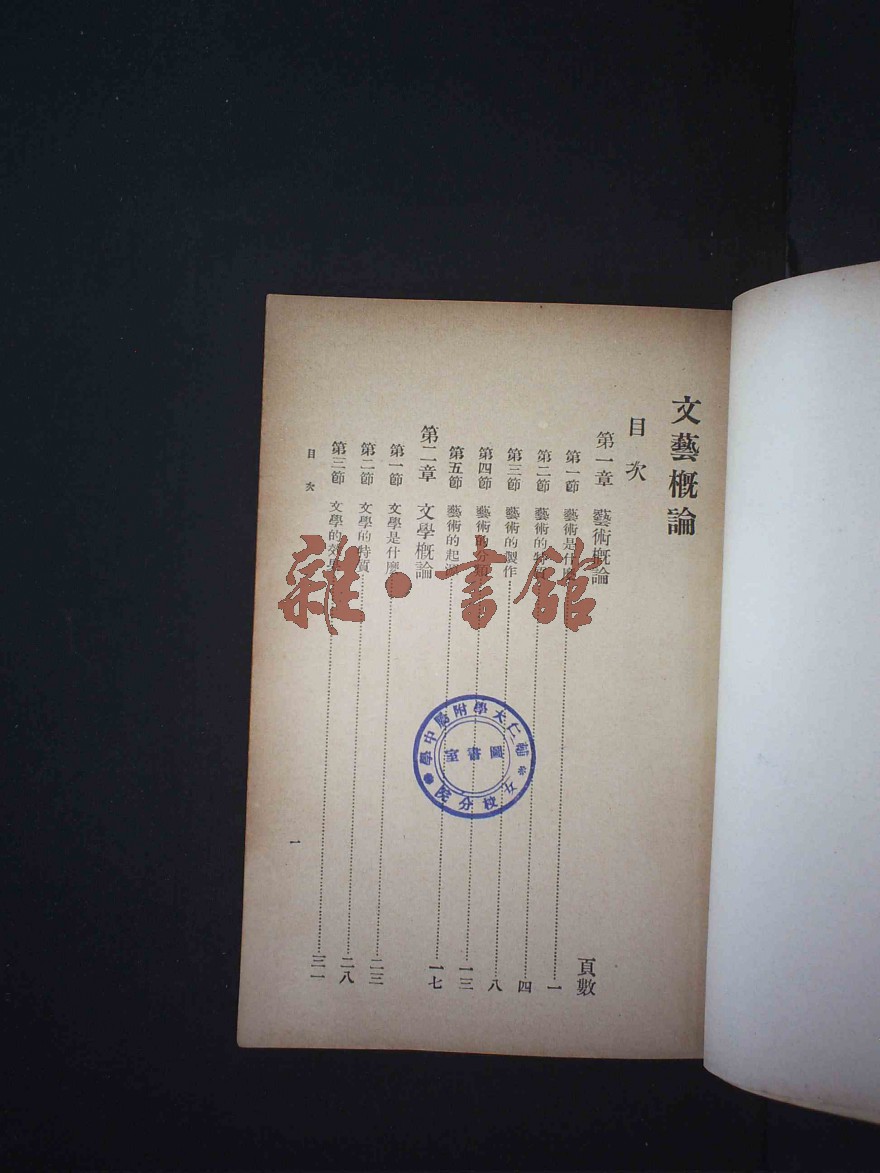 文藝概論
目次
頁數
第一章 藝術概論
第一節 藝術是什麼 一
第二節 藝術的特質 四
第三節 藝術的製作 八
第四節 藝術的分類 一三
第五節 藝術的起源 一七
第二章 文學概論
第一節 文學是什麼 二三
第二節 文學的特質 二八
第三節 文學的效果 三一
目次
一
雜·書館
輔仁大學附屬中學
圖書室
女校分院